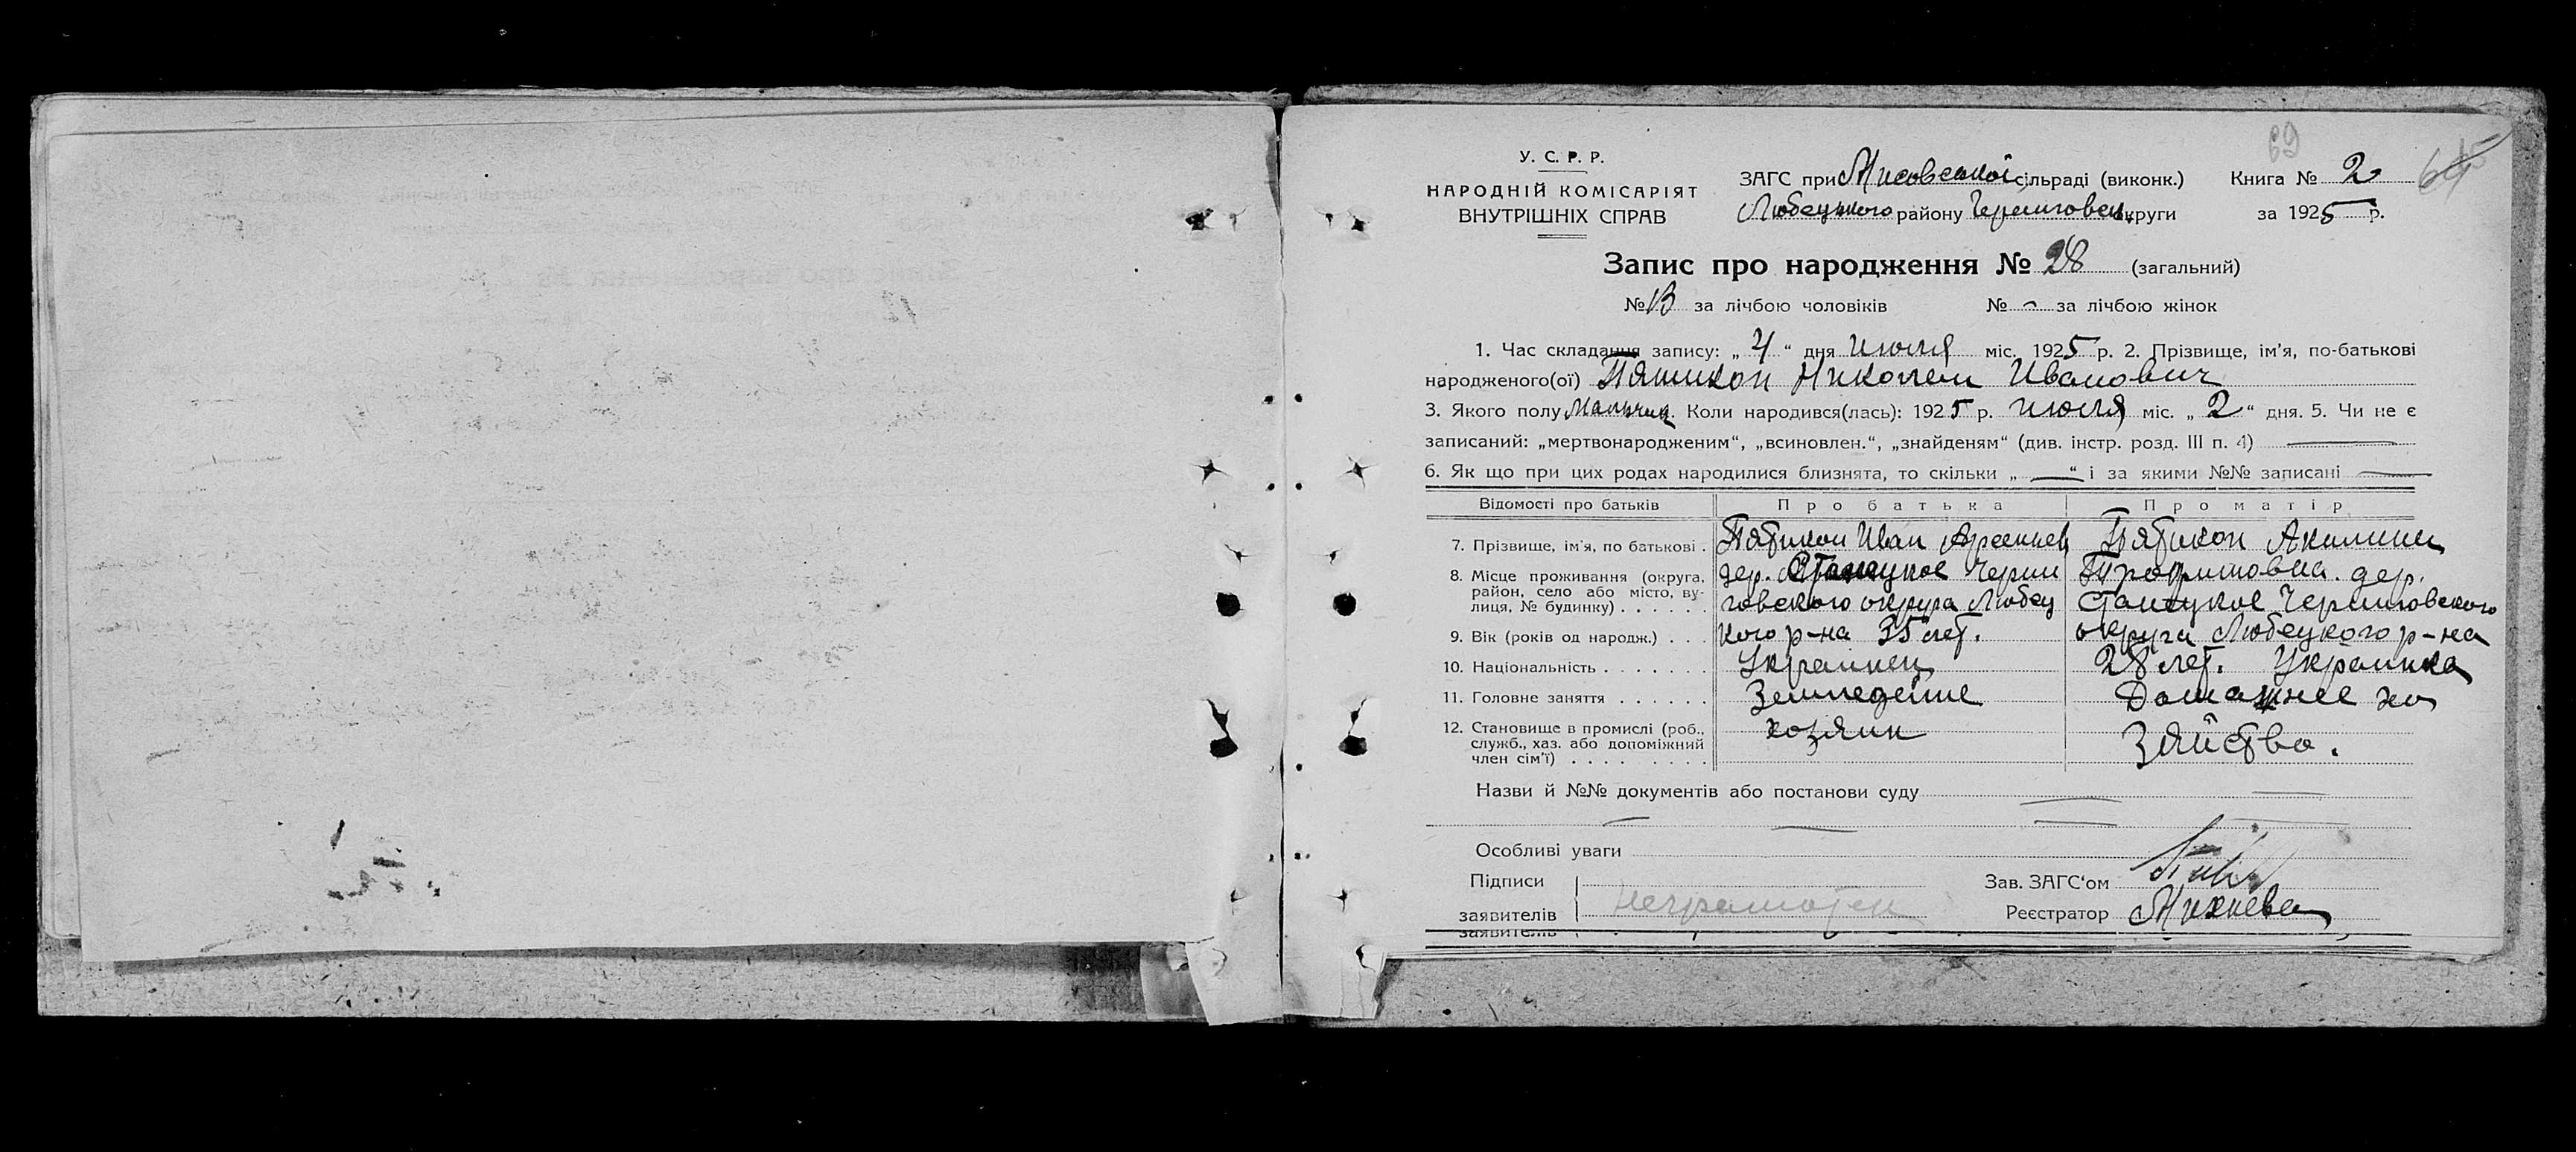 69
У. С. Р. Р.
НАРОДНІЙ КОМІСАРІЯТ
ВНУТРІШНІХ СПРАВ
ЗАГС при Мисовської сільраді (виконк.) Книга № 2
Любецького району Черниговск. округи за 1925 р.
Запис про народження № 28 (загальний)
№ 13 за лічбою чоловіків № – за лічбою жінок
1. Час складання запису: „ 4 “ дня июля міс. 1925 р. 2. Прізвище, ім’я, по-батькові
народженого(ої) Пятикоп Николай Иванович
3. Якого полу Мальчик. Коли народився(лась): 1925 р. июля міс. „ 2 “ дня. 5. Чи не є
записаний: „мертвонародженим“, „всиновлен.“, „знайденям“ (див. інстр. розд. III п. 4)
6. Як що при цих родах народилися близнята, то скільки „ — “ і за якими №№ записані
Відомості про батьків Про батька Про матір
7. Прізвище, ім’я, по батькові . Пятикоп Иван Арсениев Пятикоп Акилина
8. Місце проживання (округа, дер. Черни Трофимовна. дер.
район, село або місто, ву-
лиця, № будинку) . . . . . . говского округа Любец Станецкое Черниговского
9. Вік (років од народж.) . . . кого р-на 35 лет. округа Любецкого р-на
10. Національність . . . . . . . Украинец 28 лет. Украинка
11. Головне заняття . . . . . . Земледелие Домашнее хо
12. Становище в промислі (роб., хозяин зяйство.
служб., хаз. або допоміжний
член сім’ї) . . . . . . . . .
Назви й №№ документів або постанови суду
Особливі уваги
Підписи Зав. ЗАГС‘ом
заявителів неграмотен Реєстратор Михнева
заявителів